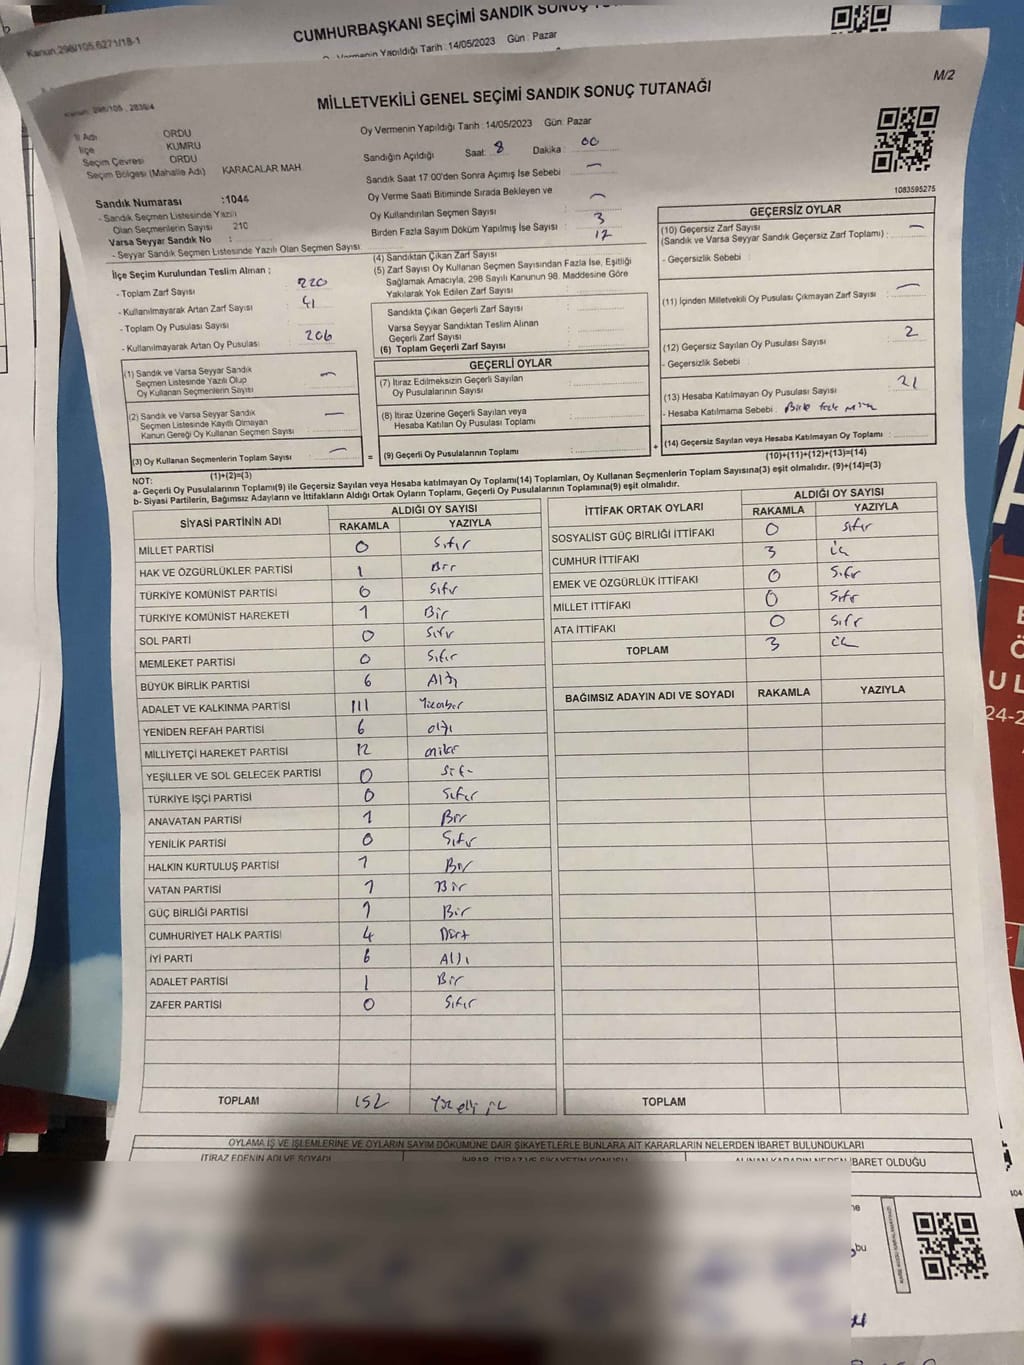 Kanun:298/105,6271/18-1
CUMHURBAŞKANI SEÇİMİ SANDIK SONUÇ
Oy Vermenin Yapıldığı Tarih : 14/05/2023 Gün : Pazar
M/2
MİLLETVEKİLİ GENEL SEÇİMİ SANDIK SONUÇ TUTANAĞI
Oy Vermenin Yapıldığı Tarih : 14/05/2023 Gün: Pazar
İl Adı : ORDU
İlçe : KUMRU
Seçim Çevresi : ORDU
Seçim Bölgesi (Mahalle Adı) : KARACALAR MAH.
Sandık Numarası :1044
- Sandık Seçmen Listesinde Yazılı
Olan Seçmenlerin Sayısı : 210
Varsa Seyyar Sandık No :
- Seyyar Sandık Seçmen Listesinde Yazılı Olan Seçmen Sayısı
Sandığın Açıldığı Saat: 8 Dakika : 00
Sandık Saat 17:00'den Sonra Açımış İse Sebebi : —
Oy Verme Saati Bitiminde Sırada Bekleyen ve
Oy Kullandırılan Seçmen Sayısı : —
Birden Fazla Sayım Döküm Yapılmış İse Sayısı : 3
12
1083595275
İlçe Seçim Kurulundan Teslim Alınan ;
- Toplam Zarf Sayısı : 220
- Kullanılmayarak Artan Zarf Sayısı : 41
- Toplam Oy Pusulası Sayısı :
- Kullanılmayarak Artan Oy Pusulası : 206
(1) Sandık ve Varsa Seyyar Sandık
Seçmen Listesinde Yazılı Olup
Oy Kullanan Seçmenlerin Sayısı : —
(2) Sandık ve Varsa Seyyar Sandık
Seçmen Listesinde Kayıtlı Olmayan
Kanun Gereği Oy Kullanan Seçmen Sayısı : —
(3) Oy Kullanan Seçmenlerin Toplam Sayısı : —
(1)+(2)=(3)
(4) Sandıktan Çıkan Zarf Sayısı
(5) Zarf Sayısı Oy Kullanan Seçmen Sayısından Fazla İse, Eşitliği
Sağlamak Amacıyla, 298 Sayılı Kanunun 98. Maddesine Göre
Yakılarak Yok Edilen Zarf Sayısı :
Sandıkta Çıkan Geçerli Zarf Sayısı :
Varsa Seyyar Sandıktan Teslim Alınan
Geçerli Zarf Sayısı :
(6) Toplam Geçerli Zarf Sayısı :
GEÇERLİ OYLAR
(7) İtiraz Edilmeksizin Geçerli Sayılan
Oy Pusulalarının Sayısı :
(8) İtiraz Üzerine Geçerli Sayılan veya
Hesaba Katılan Oy Pusulası Toplamı :
= (9) Geçerli Oy Pusulalarının Toplamı : +
GEÇERSİZ OYLAR
(10) Geçersiz Zarf Sayısı
(Sandık ve Varsa Seyyar Sandık Geçersiz Zarf Toplamı) : —
- Geçersizlik Sebebi :
(11) İçinden Milletvekili Oy Pusulası Çıkmayan Zarf Sayısı : —
(12) Geçersiz Sayılan Oy Pusulası Sayısı : 2
- Geçersizlik Sebebi :
(13) Hesaba Katılmayan Oy Pusulası Sayısı : 21
- Hesaba Katılmama Sebebi :
(14) Geçersiz Sayılan veya Hesaba Katılmayan Oy Toplamı :
(10)+(11)+(12)+(13)=(14)
NOT:
a- Geçerli Oy Pusulalarının Toplamı(9) ile Geçersiz Sayılan veya Hesaba katılmayan Oy Toplamı(14) Toplamları, Oy Kullanan Seçmenlerin Toplam Sayısına(3) eşit olmalıdır. (9)+(14)=(3)
b- Siyasi Partilerin, Bağımsız Adayların ve İttifakların Aldığı Ortak Oyların Toplamı, Geçerli Oy Pusulalarının Toplamına(9) eşit olmalıdır.
SİYASİ PARTİNİN ADI ALDIĞI OY SAYISI
RAKAMLA YAZIYLA
MİLLET PARTİSİ 0 Sıfır
HAK VE ÖZGÜRLÜKLER PARTİSİ 1 Bir
TÜRKİYE KOMÜNİST PARTİSİ 0 Sıfır
TÜRKİYE KOMÜNİST HAREKETİ 1 Bir
SOL PARTİ 0 Sıfır
MEMLEKET PARTİSİ 0 Sıfır
BÜYÜK BİRLİK PARTİSİ 6 Altı
ADALET VE KALKINMA PARTİSİ 111 Yüzonbir
YENİDEN REFAH PARTİSİ 6 altı
MİLLİYETÇİ HAREKET PARTİSİ 12 oniki
YEŞİLLER VE SOL GELECEK PARTİSİ 0 Sıfır
TÜRKİYE İŞÇİ PARTİSİ 0 Sıfır
ANAVATAN PARTİSİ 1 Bir
YENİLİK PARTİSİ 0 Sıfır
HALKIN KURTULUŞ PARTİSİ 1 Bir
VATAN PARTİSİ 1 Bir
GÜÇ BİRLİĞİ PARTİSİ 1 Bir
CUMHURİYET HALK PARTİSİ 4 Dört
İYİ PARTİ 6 Altı
ADALET PARTİSİ 1 Bir
ZAFER PARTİSİ 0 Sıfır
TOPLAM 152 Yüz elli iki
İTTİFAK ORTAK OYLARI ALDIĞI OY SAYISI
RAKAMLA YAZIYLA
SOSYALİST GÜÇ BİRLİĞİ İTTİFAKI 0 Sıfır
CUMHUR İTTİFAKI 3 üç
EMEK VE ÖZGÜRLÜK İTTİFAKI 0 Sıfır
MİLLET İTTİFAKI 0 Sıfır
ATA İTTİFAKI 0 Sıfır
TOPLAM 3 üç
BAĞIMSIZ ADAYIN ADI VE SOYADI RAKAMLA YAZIYLA
TOPLAM
OYLAMA İŞ VE İŞLEMLERİNE VE OYLARIN SAYIM DÖKÜMÜNE DAİR ŞİKAYETLERLE BUNLARA AİT KARARLARIN NELERDEN İBARET BULUNDUKLARI
İTİRAZ EDENİN ADI VE SOYADI
İBARET OLDUĞU
bu
24-2
104